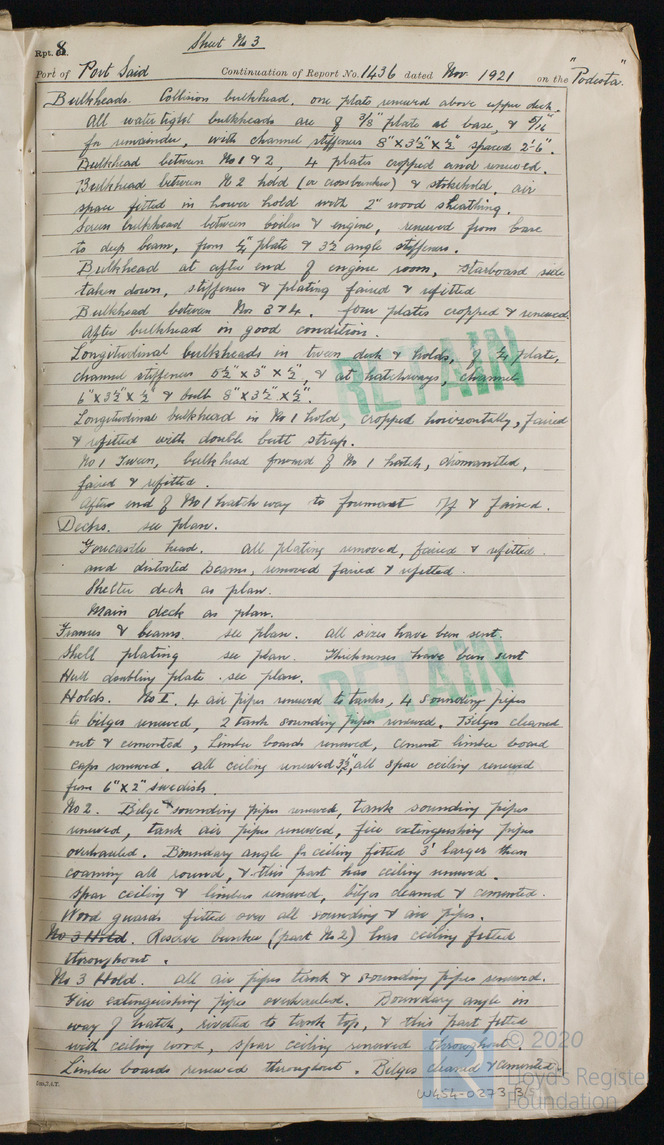 Sheet No 3
Rpt. 8.
Port of Port Said Continuation of Report No. 1436 dated Nov. 1921 on the "Podesta"
Bulkheads. Collision bulkhead. one plate renewed above upper deck.
All water tight bulkheads are of 3/8" plate at base, & 5/16"
for remainder, with channel stiffeners 8" x 3½" x ½" spaced 2'-6".
Bulkhead between No 1 & 2, 4 plates cropped and renewed.
Bulkhead between No 2 hold (or cross bunker) & stokehold. air
space fitted in lower hold with 2" wood sheathing.
Screen bulkhead between boilers & engine, renewed from base
to deep beam, from ¼" plate & 3½ angle stiffeners.
Bulkhead at after end of engine room, starboard side
taken down, stiffeners & plating faired & refitted
Bulkhead between Nos 3 & 4. four plates cropped & renewed
After bulkhead in good condition.
Longitudinal bulkheads in tween deck & holds, of ¼ plate,
channel stiffeners 5½" x 3" x ½", & at hatchways, channels
6" x 3½" x ½" & bulb 8" x 3½" x ½".
Longitudinal bulkhead in No 1 hold, cropped horizontally, faired
& refitted with double butt strap.
No 1 Tween, bulkhead forward of No 1 hatch, dismantled,
faired & refitted.
After end of No 1 hatch way to foremast off & faired.
Decks. see plan.
Forecastle head. All plating removed, faired & refitted.
and distorted beams, removed faired & refitted.
Shelter deck as plan.
Main deck as plan.
Frames & beams. see plan. all sizes have been sent.
Shell plating see plan. Thicknesses have been sent
Hull doubling plate. see plan.
Holds. No I. 4 air pipes renewed to tanks, 4 sounding pipes
to bilges renewed, 2 tank sounding pipes renewed. Bilges cleaned
out & cemented, limber boards renewed, cement limber board
caps renewed. All ceiling renewed 3½", all spar ceiling renewed
from 6" x 2" swedish.
No 2. Bilge & sounding pipes renewed, tank sounding pipes
renewed, tank air pipes renewed, fire extinguishing pipes
overhauled. Boundary angle for ceiling fitted 3' larger than
coaming all round, & this part has ceiling renewed.
Spar ceiling & limbers renewed, bilges cleaned & cemented.
Wood guards fitted over all sounding & air pipes.
No 3 Hold. Reserve bunker (part No 2) has ceiling fitted
throughout.
No 3 Hold. All air pipes tank & sounding pipes renewed.
Fire extinguishing pipes overhauled. Boundary angle in
way of hatch, riveted to tank top, & this part fitted
with ceiling wood, spar ceiling renewed throughout.
Limber boards renewed throughout. Bilges cleaned & cemented.
RETAIN
RETAIN
W454-0273 3/5
© 2020
Lloyd's Register
Foundation